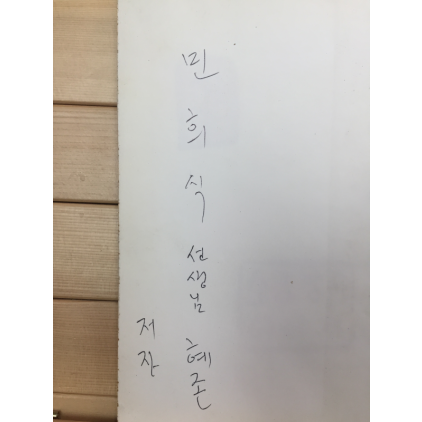 민희식 선생님 혜존
저자